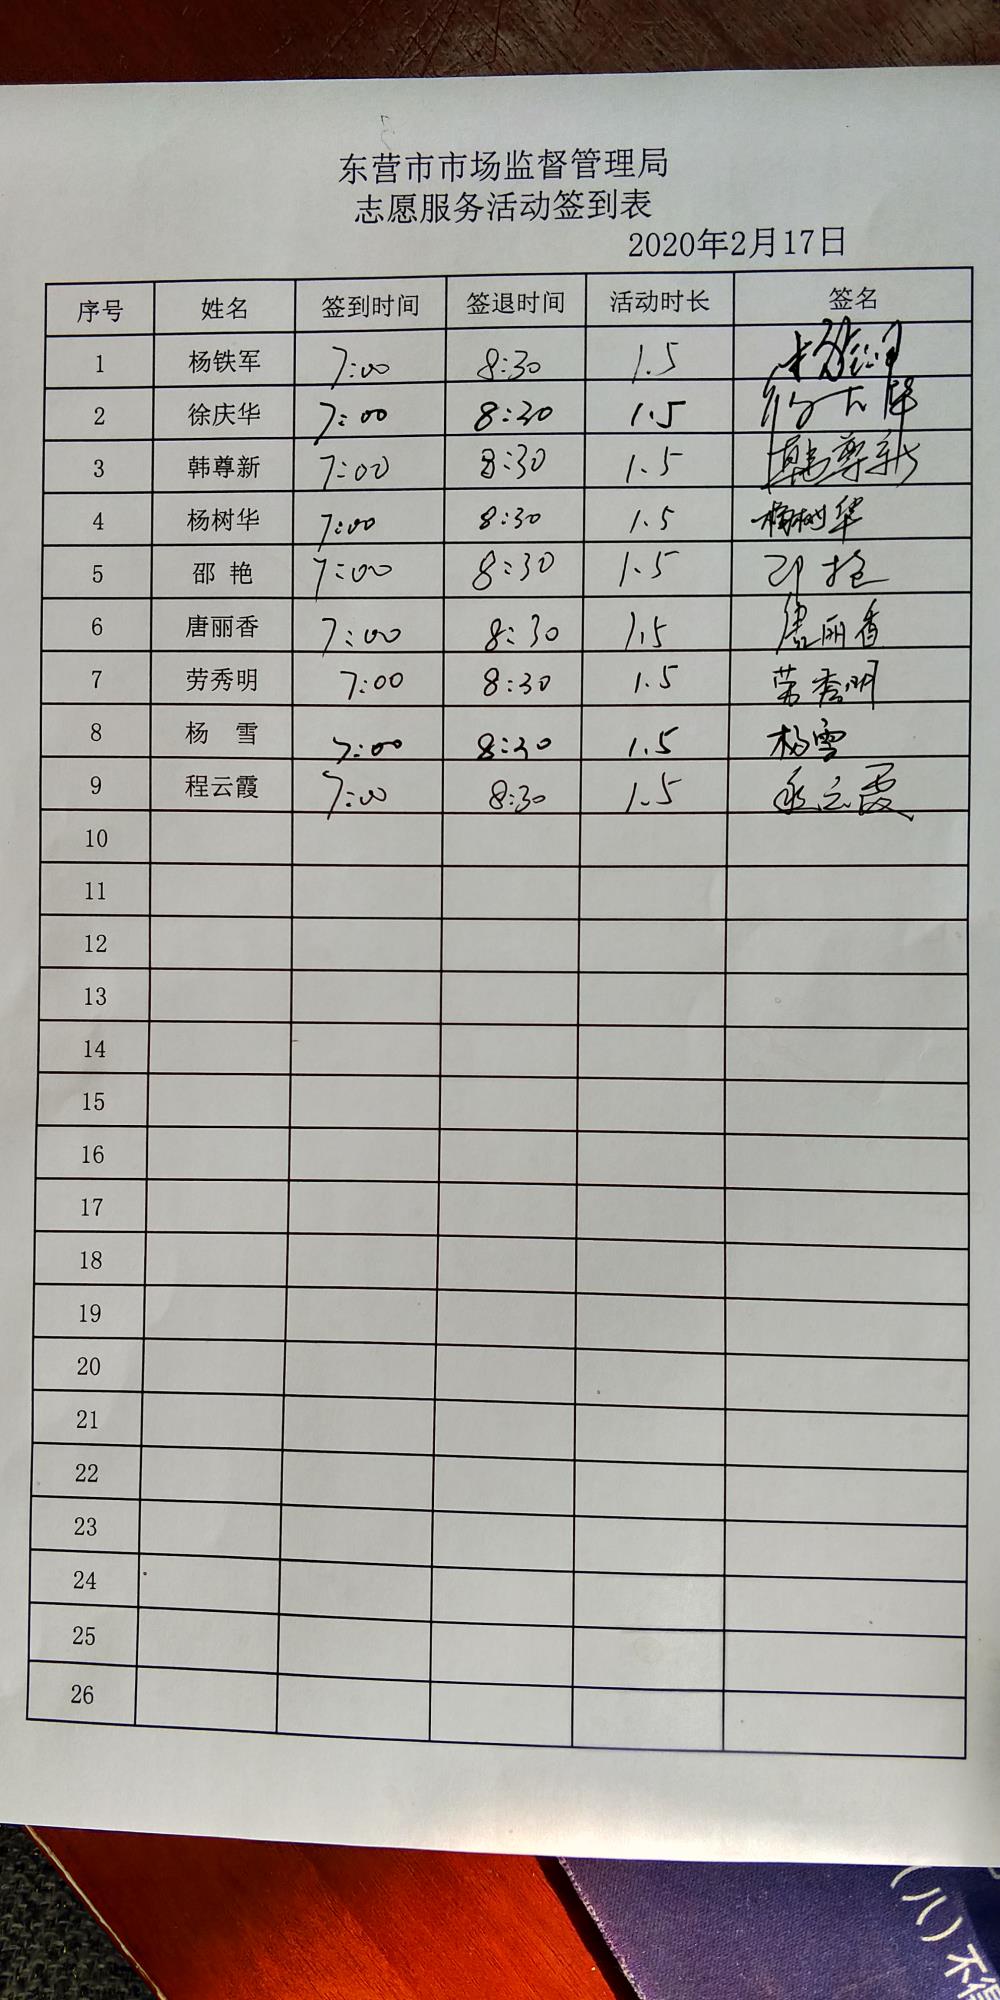 东营市市场监督管理局
志愿服务活动签到表
2020年2月17日
序号 姓名 签到时间 签退时间 活动时长 签名
1 杨铁军 7:00 8:30 1.5 杨铁军
2 徐庆华 7:00 8:30 1.5 徐庆华
3 韩尊新 7:00 8:30 1.5 韩尊新
4 杨树华 7:00 8:30 1.5 杨树华
5 邵 艳 7:00 8:30 1.5 邵艳
6 唐丽香 7:00 8:30 1.5 唐丽香
7 劳秀明 7:00 8:30 1.5 劳秀明
8 杨 雪 7:00 8:30 1.5 杨雪
9 程云霞 7:00 8:30 1.5 程云霞
10
11
12
13
14
15
16
17
18
19
20
21
22
23
24
25
26
(八)不得